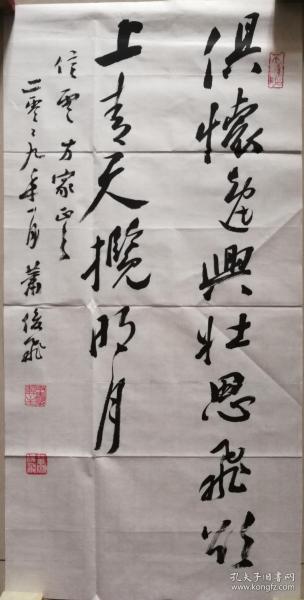 俱懷逸興壯思飛欲
上青天攬明月
佳雲方家正之
二零零九年一月 蕭俊飛
孔夫子旧书网